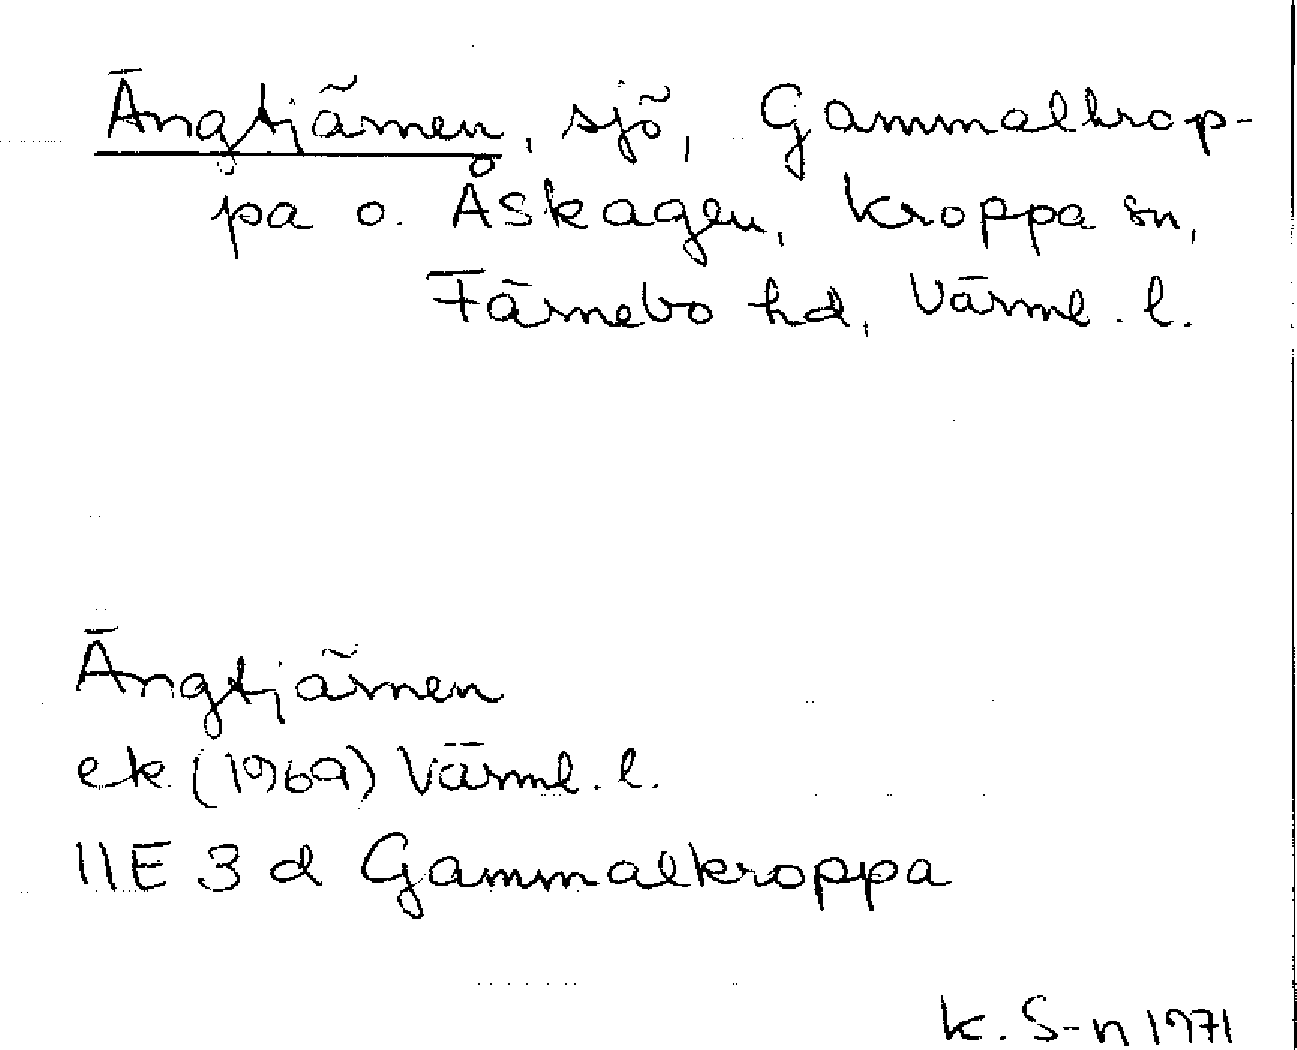 Ängtjärnen, sjö, Gammalkrop-
pa o. Åskagen, Kroppa sn,
Färnebo hd, Värml. l.
Ängtjärnen
ek. (1969) Värml. l.
11E 3 d Gammalkroppa
K. S-n 1971